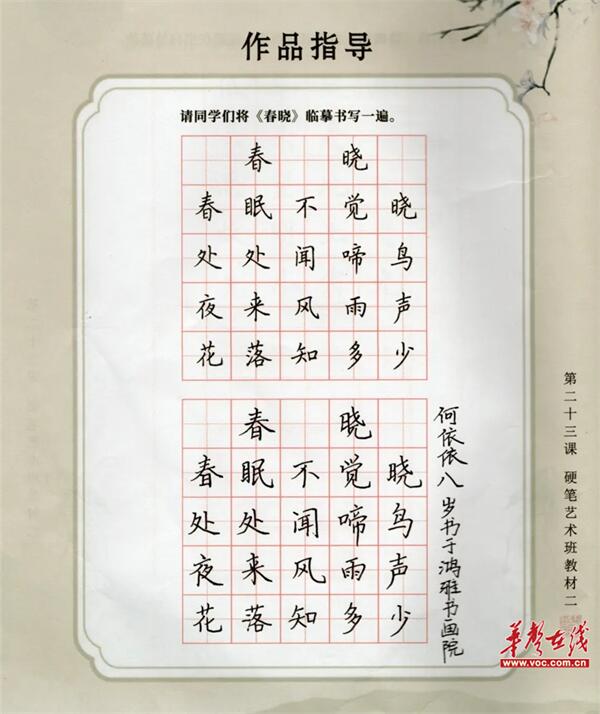 作品指导
请同学们将《春晓》临摹书写一遍。
春晓
春眠不觉晓
处处闻啼鸟
夜来风雨声
花落知多少
春晓
春眠不觉晓
处处闻啼鸟
夜来风雨声
花落知多少
何依依八岁书于鸿雅书画院
第二十三课 硬笔艺术班教材二
华声在线
www.voc.com.cn